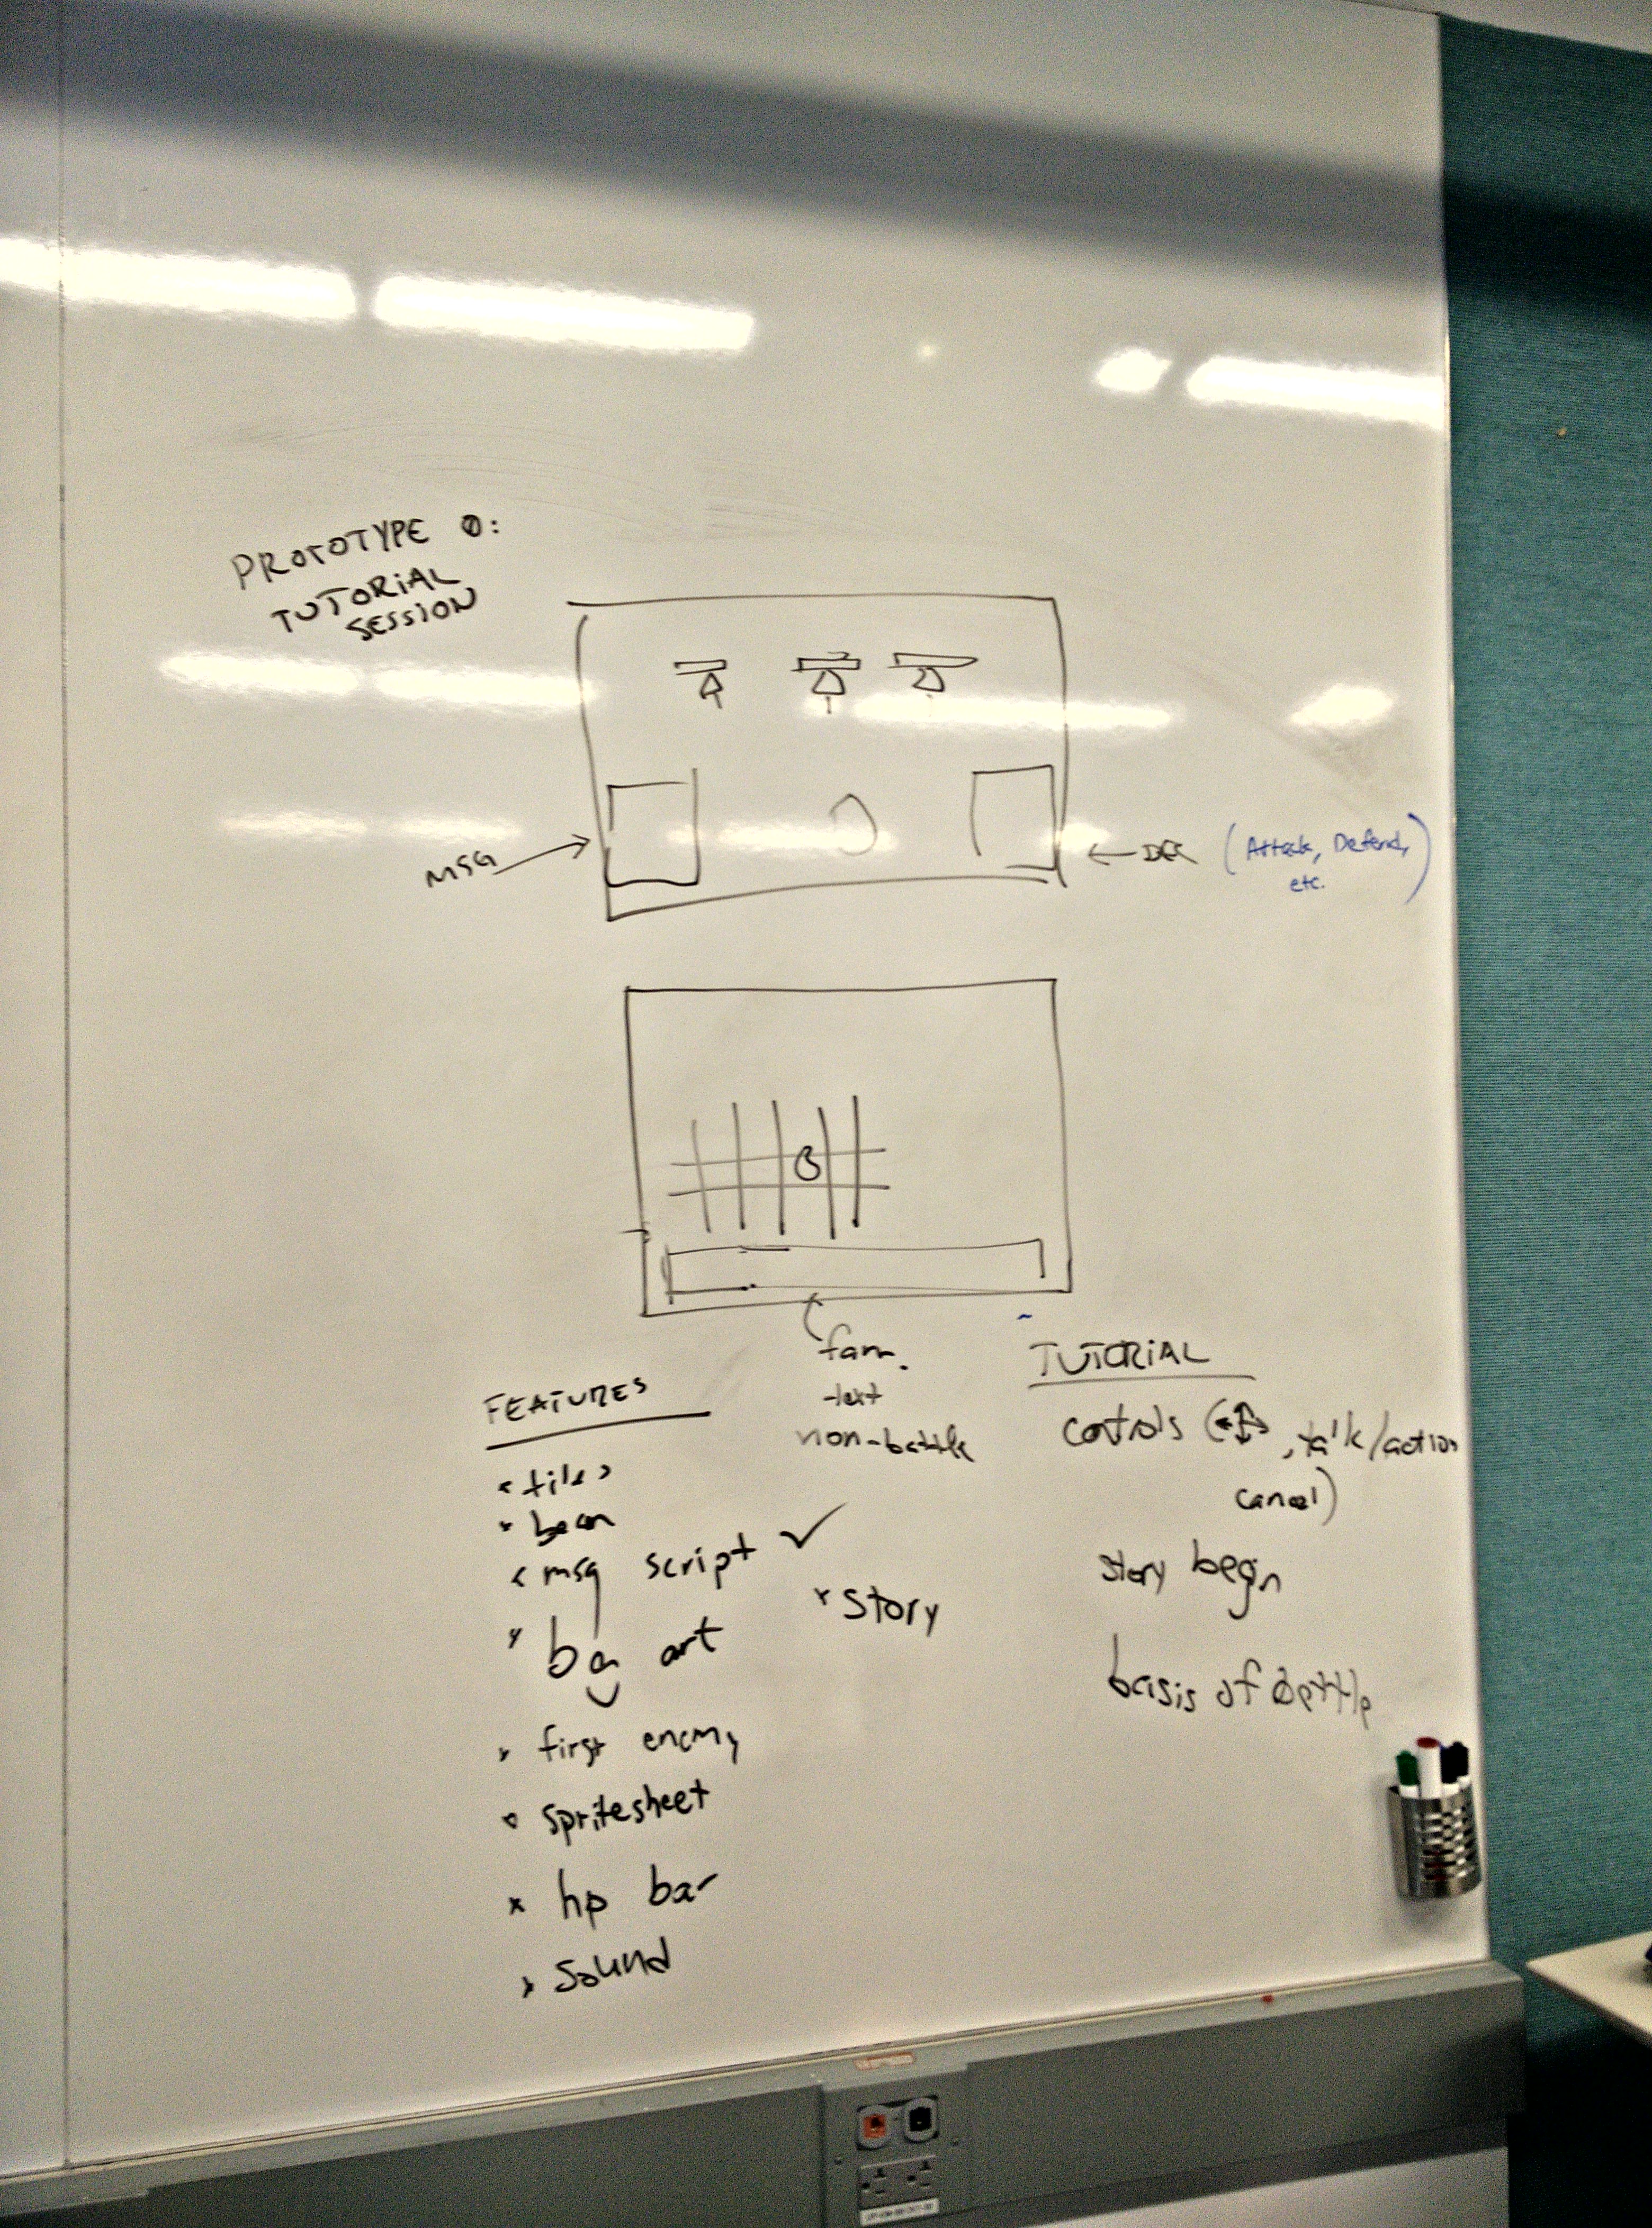 PROTOTYPE 0:
TUTORIAL
SESSION
MSG
(Attack, Defend,
etc.)
text
non-battle
FEATURES
tiles
bean
msg script ✓
bg art
first enemy
spritesheet
hp bar
sound
story
TUTORIAL
controls ( , talk/action
cancel)
story begin
basis of battle